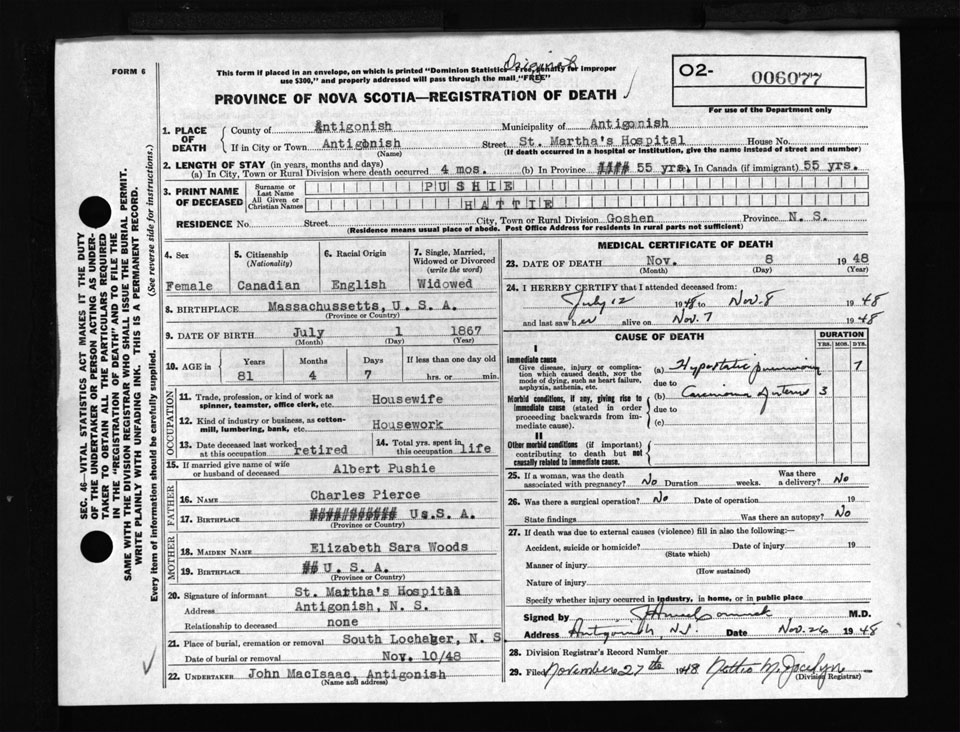 FORM 6
Original
This form if placed in an envelope, on which is printed "Dominion Statistics—Free, penalty for improper
use $300," and properly addressed will pass through the mail "FREE"
PROVINCE OF NOVA SCOTIA—REGISTRATION OF DEATH
O2- 006077
For use of the Department only
1. PLACE OF DEATH
County of Antigonish Municipality of Antigonish
If in City or Town Antigonish Street St. Martha's Hospital House No.
(Name) (If death occurred in a hospital or institution, give the name instead of street and number)
2. LENGTH OF STAY (in years, months and days)
(a) In City, Town or Rural Division where death occurred 4 mos. (b) In Province 55 yrs. In Canada (if immigrant) 55 yrs.
3. PRINT NAME OF DECEASED
Surname or Last Name PUSHIE
All Given or Christian Names HATTIE
RESIDENCE No. Street City, Town or Rural Division Goshen Province N. S.
(Residence means usual place of abode. Post Office Address for residents in rural parts not sufficient)
4. Sex Female
5. Citizenship (Nationality) Canadian
6. Racial Origin English
7. Single, Married, Widowed or Divorced (write the word) Widowed
8. BIRTHPLACE Massachussetts, U. S. A.
(Province or Country)
9. DATE OF BIRTH July 1 1867
(Month) (Day) (Year)
10. AGE in Years Months Days If less than one day old
81 4 7 hrs. or min.
OCCUPATION
11. Trade, profession, or kind of work as spinner, teamster, office clerk, etc. Housewife
12. Kind of industry or business, as cotton-mill, lumbering, bank, etc. Housework
13. Date deceased last worked at this occupation retired
14. Total yrs. spent in this occupation life
15. If married give name of wife or husband of deceased Albert Pushie
FATHER
16. NAME Charles Pierce
17. BIRTHPLACE U.S.A.
(Province or Country)
MOTHER
18. MAIDEN NAME Elizabeth Sara Woods
19. BIRTHPLACE U.S.A.
(Province or Country)
20. Signature of informant St. Martha's Hospital
Address Antigonish, N. S.
Relationship to deceased none
21. Place of burial, cremation or removal South Lochaber, N. S.
Date of burial or removal Nov. 10/48
22. UNDERTAKER John MacIsaac, Antigonish
(Name and address)
MEDICAL CERTIFICATE OF DEATH
23. DATE OF DEATH Nov. 8 1948
(Month) (Day) (Year)
24. I HEREBY CERTIFY that I attended deceased from:
July 12 1948 to Nov. 8 1948
and last saw her alive on Nov. 7 1948
CAUSE OF DEATH DURATION
YRS. MOS. DYS.
I
Immediate cause
Give disease, injury or complication which caused death, not the mode of dying, such as heart failure, asphyxia, asthenia, etc.
(a) Hypostatic pneumonia 7
due to
Morbid conditions, if any, giving rise to immediate cause (stated in order proceeding backwards from immediate cause).
(b) Carcinoma of uterus 3
due to
(c)
II
Other morbid conditions (if important) contributing to death but not causally related to immediate cause.
25. If a woman, was the death associated with pregnancy? No Duration weeks. Was there a delivery? No
26. Was there a surgical operation? No Date of operation 19
State findings Was there an autopsy? No
27. If death was due to external causes (violence) fill in also the following:—
Accident, suicide or homicide? Date of injury 19
(State which)
Manner of injury
(How sustained)
Nature of injury
Specify whether injury occurred in industry, in home, or in public place
Signed by M.D.
Address Antigonish, N.S. Date Nov. 26 1948
28. Division Registrar's Record Number
29. Filed November 27th 1948
(Division Registrar)
SEC. 46—VITAL STATISTICS ACT MAKES IT THE DUTY
OF THE UNDERTAKER OR PERSON ACTING AS UNDER-
TAKER TO OBTAIN ALL THE PARTICULARS REQUIRED
IN THE "REGISTRATION OF DEATH" AND TO FILE THE
SAME WITH THE DIVISION REGISTRAR WHO SHALL ISSUE THE BURIAL PERMIT.
WRITE PLAINLY WITH UNFADING INK. THIS IS A PERMANENT RECORD.
Every item of information should be carefully supplied. (See reverse side for instructions.)